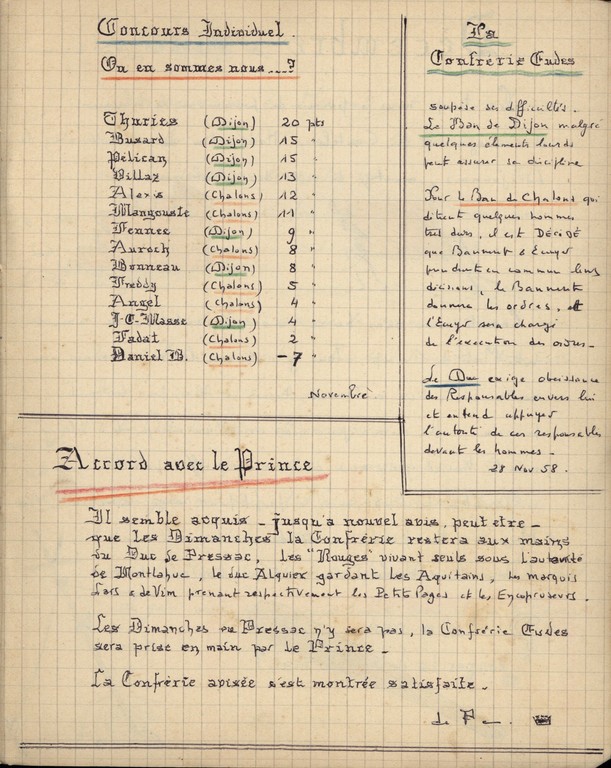 Concours Individuel.
Ou en sommes nous....?
Thuriès (Dijon) 20 pts
Busard (Dijon) 15 "
Pélican (Dijon) 15 "
Villaz (Dijon) 13 "
Alexis (Chalons) 12 "
Mangouste (Chalons) 11 "
Fennec (Dijon) 9 "
Auroch (Chalons) 8 "
Bonneau (Dijon) 8 "
Freddy (Chalons) 5 "
Angel (Chalons) 4 "
J-C-Masse (Dijon) 4 "
Fadat (Chalons) 2 "
Daniel B. (Chalons) -7 "
Novembre
La
Confrérie Eudes
soupèse ses difficultés.
Le Ban de Dijon malgré
quelques éléments lourds
peut assurer sa discipline
Pour le Ban de Chalons qui
détient quelques hommes
très durs, il est DÉCIDÉ
que Banneret & Ecuyer
prendront en commun leurs
décisions, le Banneret
donnera les ordres, et
l'Ecuyer sera chargé
de l'execution des ordres-
Le Duc exige obeissance
des Responsables envers lui
et entend appuyer
l'autorité de ces responsables
devant les hommes -
28 Nov 58.
Accord avec le Prince
Il semble acquis - jusqu'a nouvel avis, peut etre -
que les Dimanches la Confrérie restera aux mains
du Duc de Pressac, les "Rouges" vivant seuls sous l'autorité
de Montlahuc, le duc Alquier gardant les Aquitains, les marquis
Lars & de Vim prenant respectivement les Petits Pages et les Encapuseurs.
Les Dimanches ou Pressac n'y sera pas, la Confrérie Eudes
sera prise en main par le Prince -
La Confrérie avisée s'est montrée satisfaite -